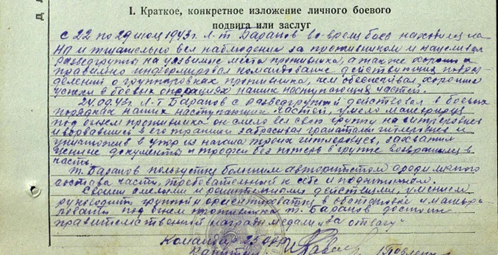 I. Краткое, конкретное изложение личного боевого
подвига или заслуг
с 22 по 24 июл 1943г. л-т Баранов во время боев находился на
НП и тщательно вел наблюдение за противником и нацеливал
разведгруппы на уязвимые места противника, а также хорошо и
правильно информировал командование о действиях подраз-
делений и группировках противника, чем обеспечивал хорошие
успехи в боевых операциях наших наступающих частей.
24.07.43г. л-т Баранов с разведгруппой действовал в боевых
порядках наших наступающих частей, умело маневрируя
под огнем противника, вел свою группу на
и ворвавшись в его траншеи забросал гранатами гитлеровцев и
уничтожив в упор из нагана троих гитлеровцев, захватил
ценные документы и трофеи без потерь в группе возвратился в
часть.
Т. Баранов пользуется большим авторитетом среди личного
состава части, требовательный к себе и подчиненным.
Своими смелыми и решительными действиями, умением
руководить группой и ориентироваться в обстановке и маневри-
ровать под огнем противника т. Баранов достоин
правительственной награды медали "за отвагу"
Командир 25
Капитан